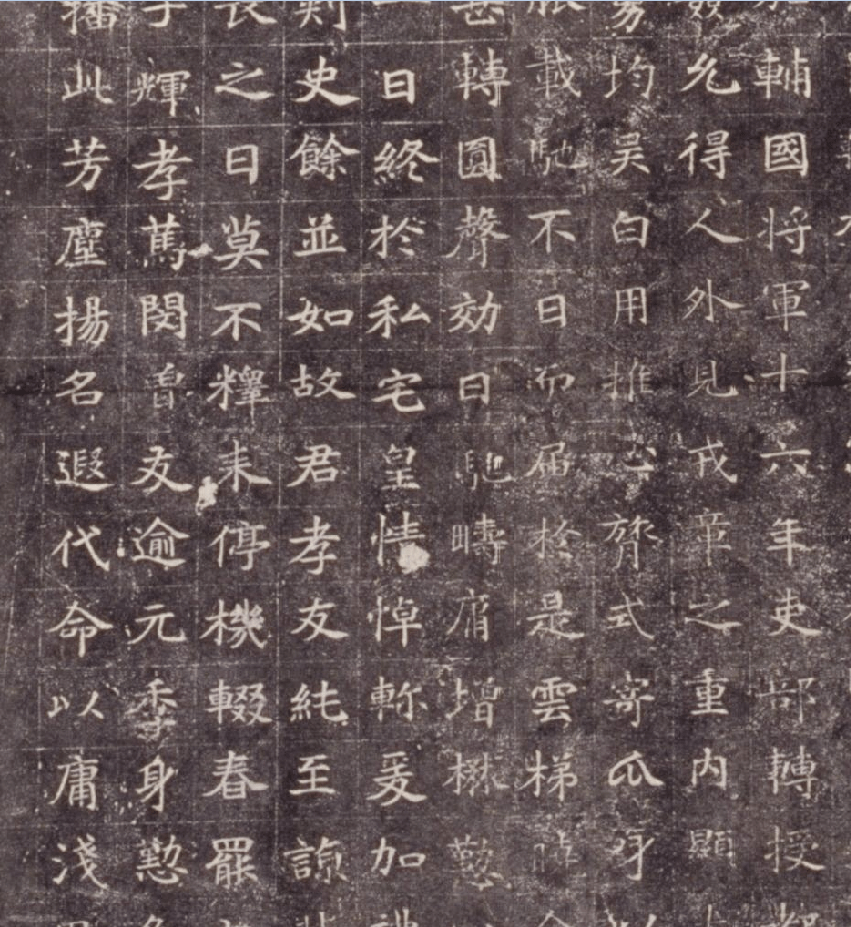 輔國将軍十六年吏部轉授
允得人外見戎章之重内顯
均吴白用推心膂式寄瓜牙
載馳不日而届於是雲梯
轉圓聲効日馳疇庸增楙懃
日終於私宅皇情悼軫爰加
刺史餘並如故君孝友純至諒
長之日莫不釋耒停機輟春罷
子輝孝篤閔曾友逾元季身懃
播此芳塵揚名遐代命以庸淺